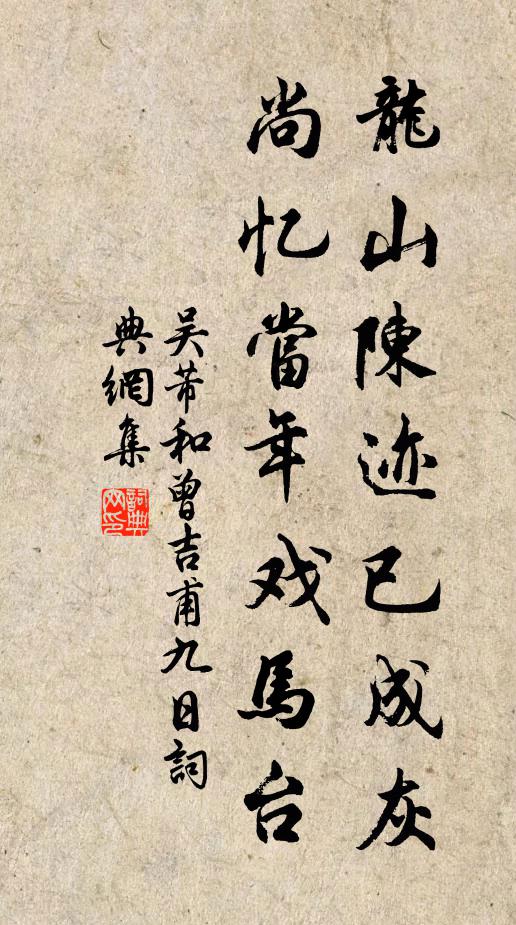 龍山陳迹已成灰
尚忆當年戏馬台
吴芾和曾吉甫九日詞
典網集
詞典
网印